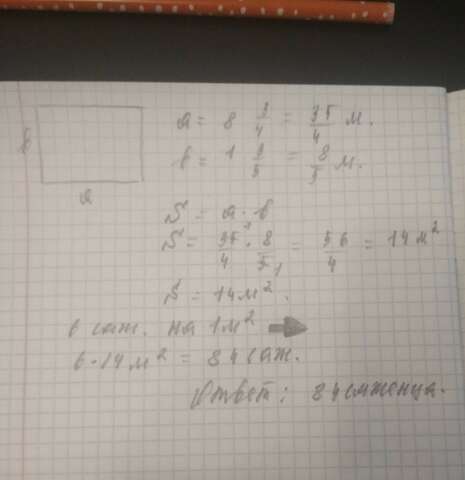 a = 8 3/4 = 35/4 м.
в
в = 1 3/5 = 8/5 м.
a
S = a · в
S = 35/4 · 8/5 = 56/4 = 14 м²
S = 14 м².
6 саж. на 1 м² →
6 · 14 м² = 84 саж.
Ответ: 84 саженца.